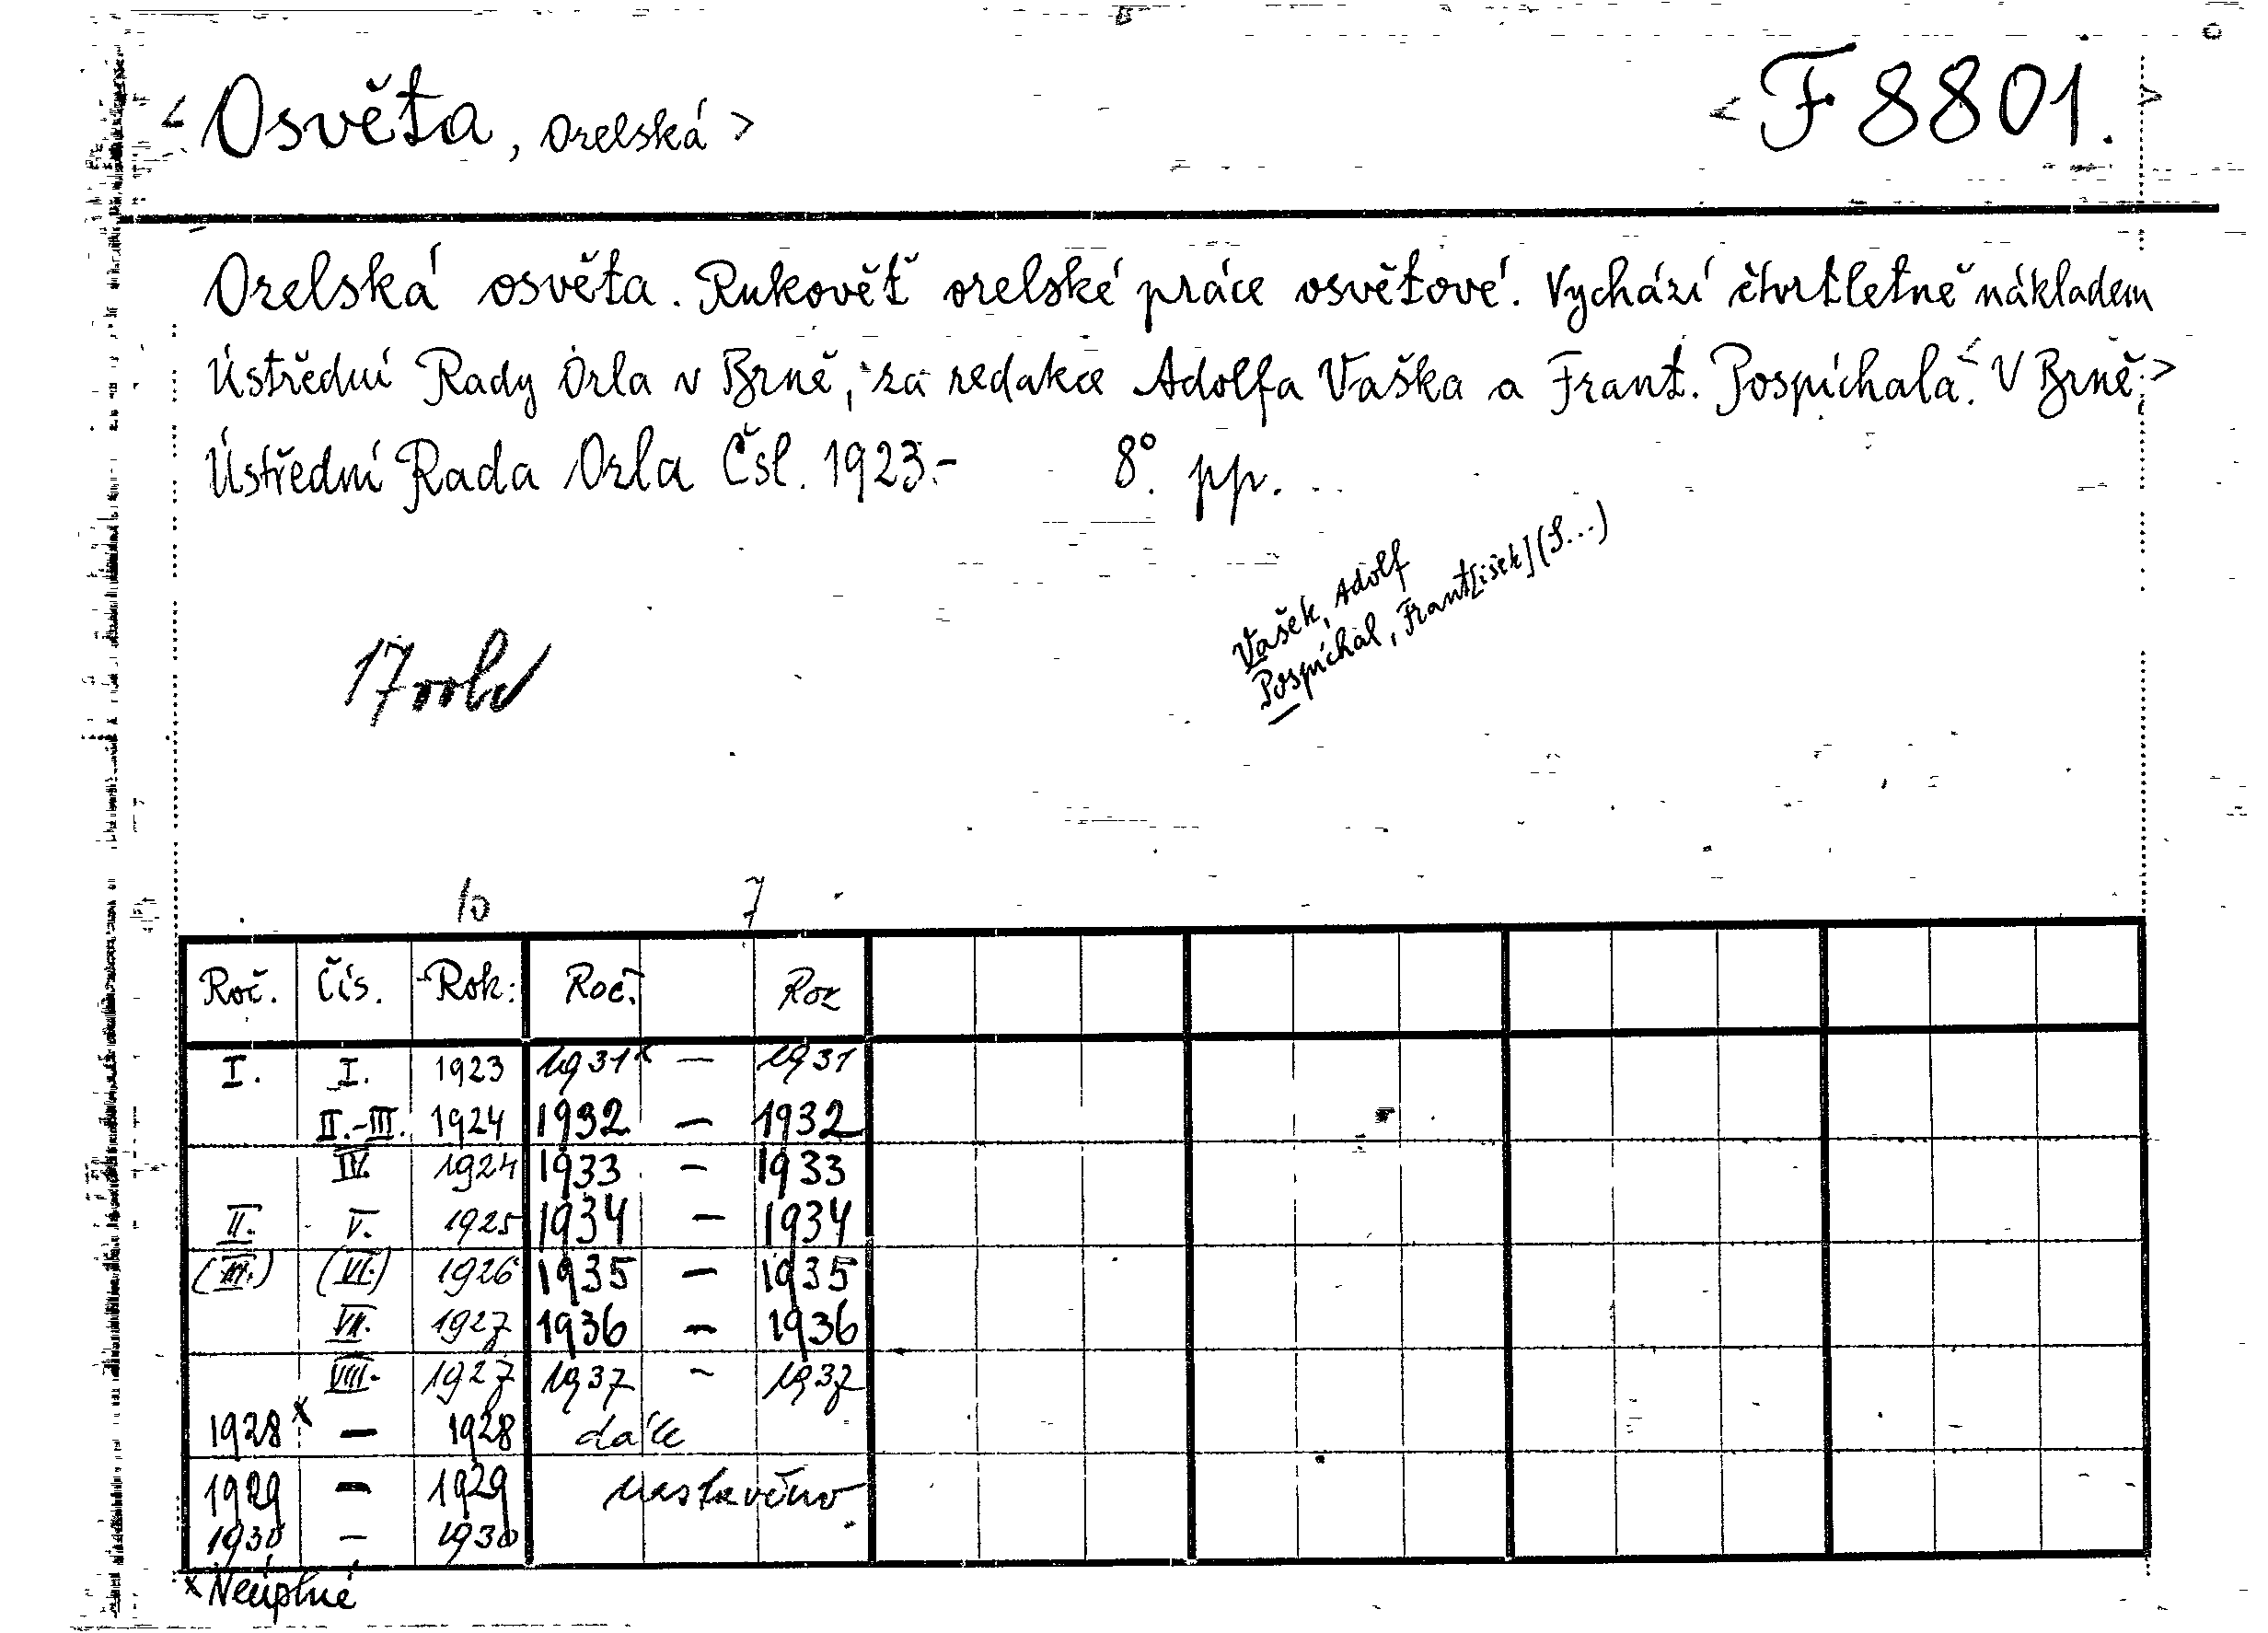 < Osvěta, Orelská >
< F 8801. >
Orelská osvěta. Rukověť orelské práce osvětové. Vychází čtvrtletně nákladem
Ústřední Rady Orla v Brně, za redakce Adolfa Vaška a Frant. Pospíchala. < V Brně: >
Ústřední Rada Orla Čsl. 1923.- 8°. pp.
Vašek, Adolf
Pospíchal, Frant[išek] (S...)
10 7
Roč. Čís. Rok: Roč. Rok
I. I. 1923 1931x — 1931
II.-III. 1924 1932 — 1932
IV. 1924 1933 — 1933
II. V. 1925 1934 — 1934
(III.) (VI.) 1926 1935 — 1935
VII. 1927 1936 — 1936
VIII. 1927 1937 - 1937
1928x — 1928 dále
1929 — 1929 nastavěno
1930 — 1930
x Neúplné